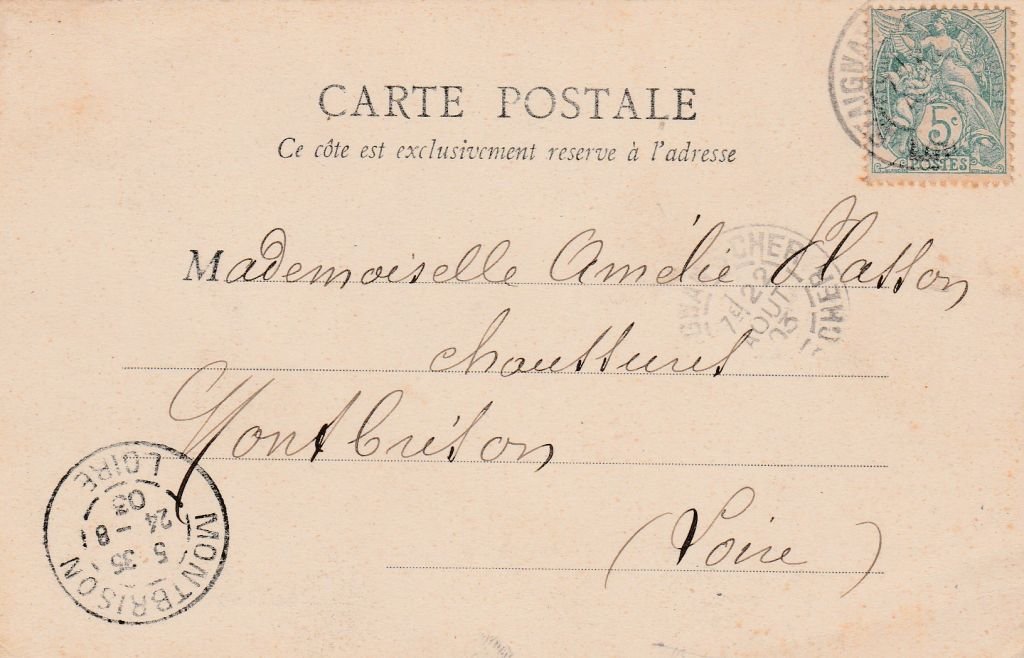 CARTE POSTALE
Ce côte est exclusivement reserve à l'adresse
5c
POSTES
Mademoiselle Amélie Plasson
CHER
1er / 22
AOUT
03
chaussures
Montbrison
(Loire)
LOIRE
03
24 - 8
5 35
MONTBRISON